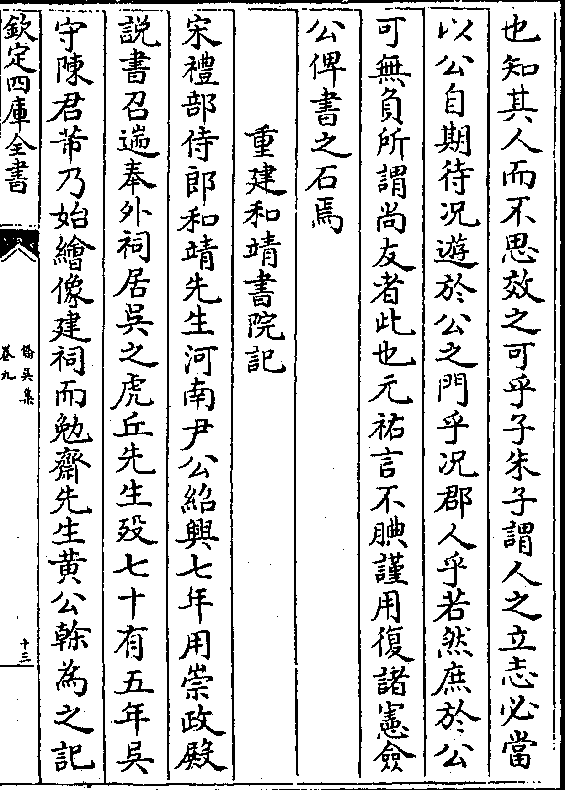 也知其人而不思效之可乎子朱子謂人之立志必當
以公自期待况遊於公之門乎况郡人乎若然庶於公
可無負所謂尚友者此也元祐言不腆謹用復諸憲僉
公俾書之石焉
重建和靖書院記
宋禮部侍郎和靖先生河南尹公紹興七年用崇政殿
説書召遄奉外祠居吳之虎丘先生殁七十有五年吳
守陳君芾乃始繪像建祠而勉齋先生黄公榦為之記
欽定四庫全書
僑吳集
卷九
十三